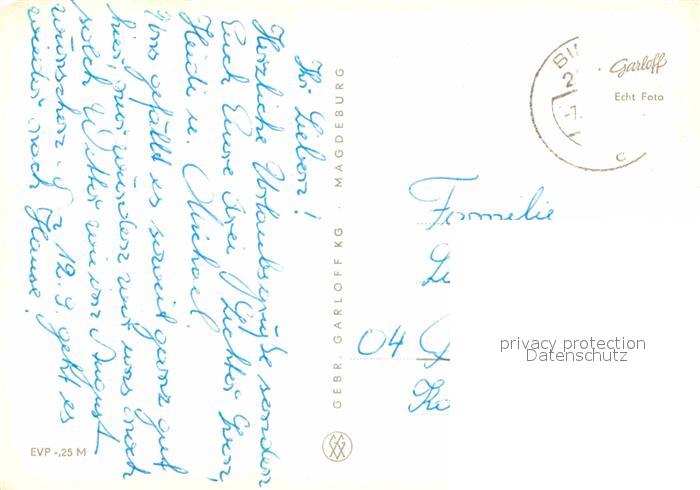 Ihr Lieben!
Herzliche Urlaubsgrüße senden
Euch Eure drei
Heidi u. Michael.
Uns gefällt es soweit ganz gut
hier, nur würden wir uns noch
solch Wetter wie im August
wünschen. Am 12.9. geht es
wieder nach Hause.
GEBR. GARLOFF KG · MAGDEBURG
Garloff
Echt Foto
Familie
04
privacy protection
Datenschutz
EVP -,25 M